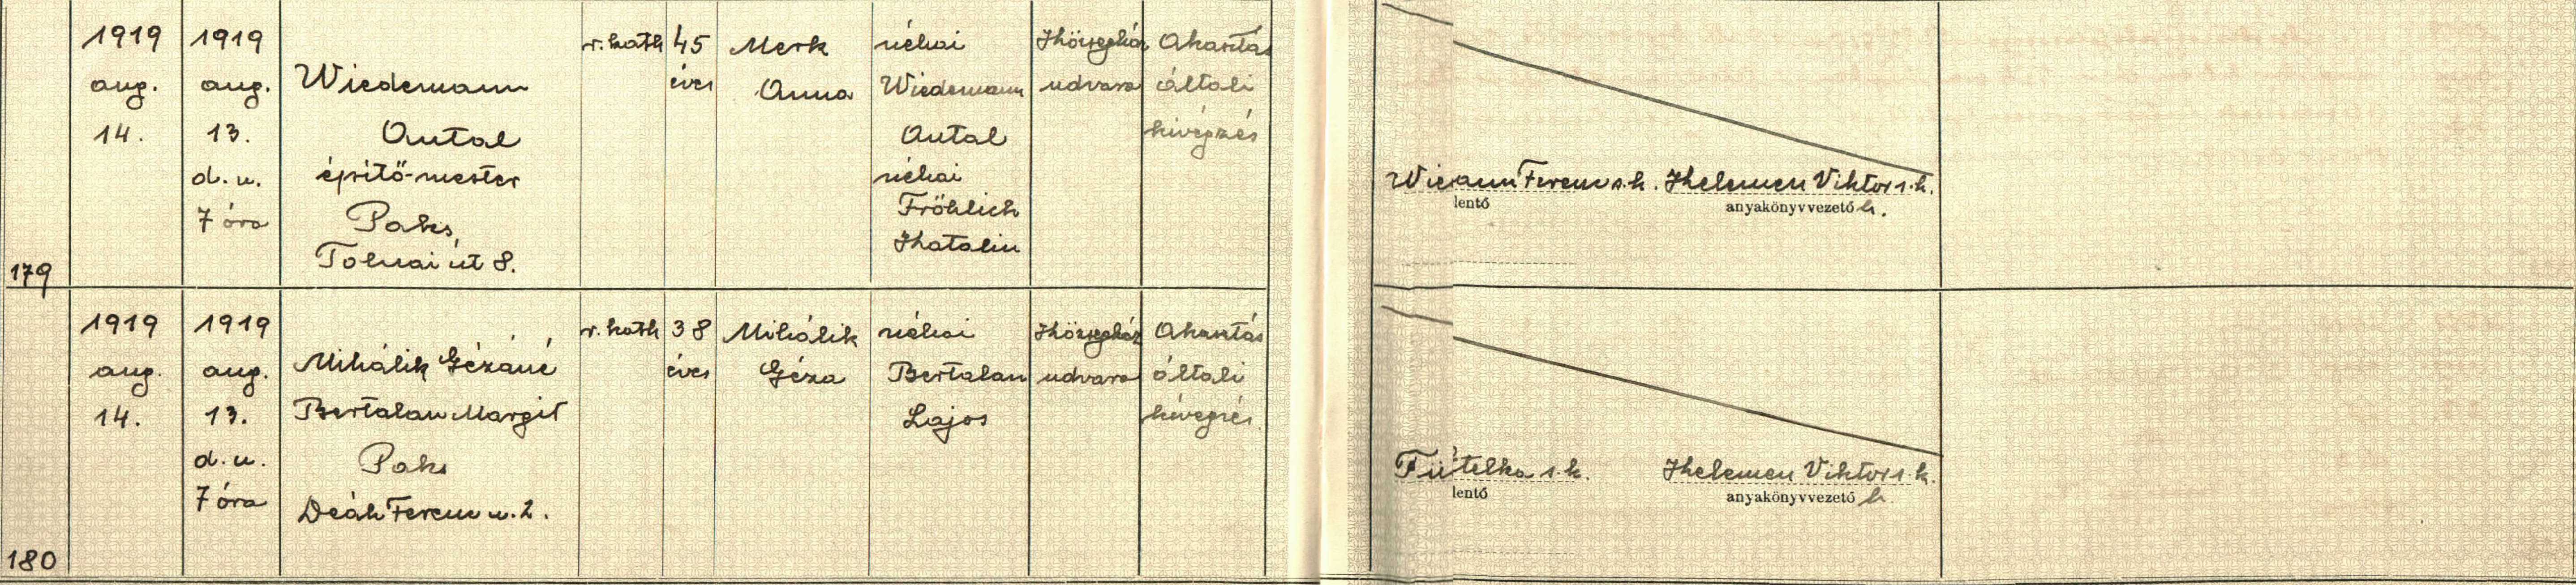 1919
aug.
14.
1919
aug.
13.
d. u.
7 óra
Wiedemann
Antal
építő-mester
Paks,
Tolnai út 8.
r. kath
45
éves
Merk
Anna
néhai
Wiedemann
Antal
néhai
Fröhlich
Katalin
Községház
udvara
Akasztás
általi
kivégzés
Ferenc s.k. Kelemen Viktor s.k.
lentő
anyakönyvvezető h.
179
1919
aug.
14.
1919
aug.
13.
d. u.
7 óra
Mihálik Gézáné
Bertalan Margit
Paks
Deák Ferenc u. 2.
r. kath
38
éves
Mihálik
Géza
néhai
Bertalan
Lajos
Községház
udvara
Akasztás
általi
kivégzés
s.k. Kelemen Viktor s.k.
lentő
anyakönyvvezető h.
180